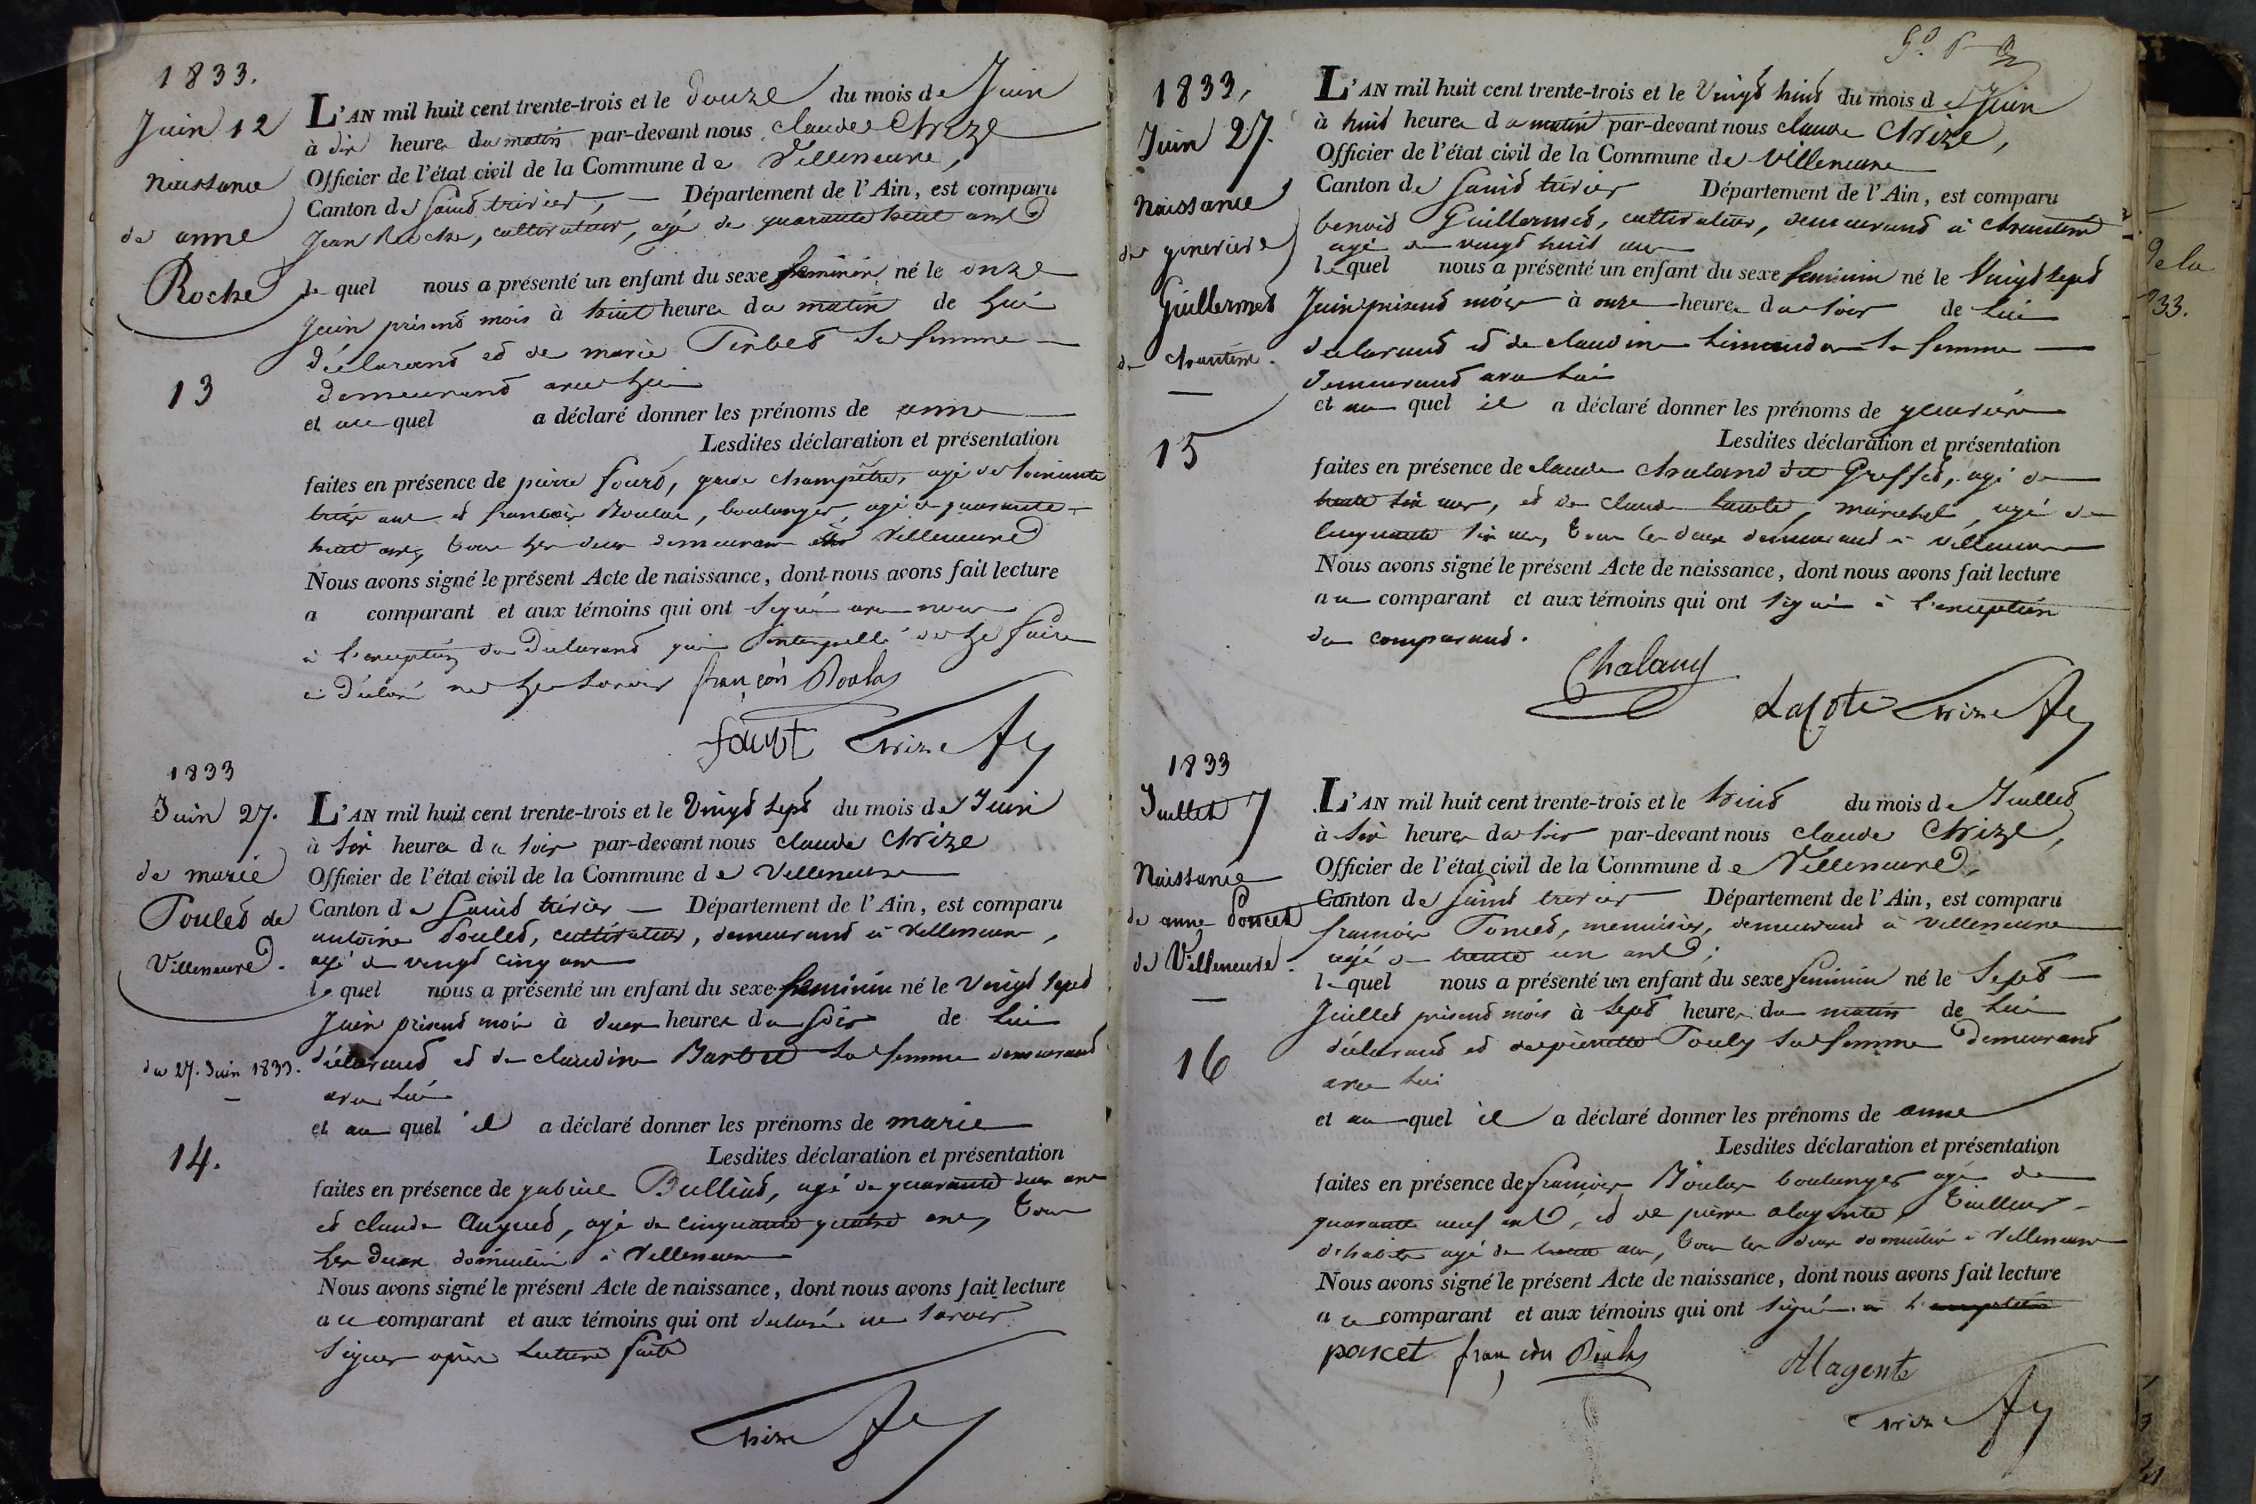 1833.
Juin 12
Naissance
de anne
Roche
13
L'AN mil huit cent trente-trois et le douze du mois de Juin
à dix heures du matin par-devant nous claude Chrize
Officier de l'état civil de la Commune de Villeneuve,
Canton de Saint trivier, — Département de l'Ain, est comparu
Jean Roche, cultivateur, agé de quarante huit ans
le quel nous a présenté un enfant du sexe feminin né le onze
Juin présent mois à huit heures du matin de lui
déclarant et de marie Perbet sa femme
demeurant avec lui
et au quel a déclaré donner les prénoms de anne
Lesdites déclaration et présentation
faites en présence de pierre fourt, garde champêtre, agé de soixante
treize ans et francois Boulas, boulanger, agé de quarante
huit ans, tous les deux demeurant à Villeneuve
Nous avons signé le présent Acte de naissance, dont nous avons fait lecture
a comparant et aux témoins qui ont signé avec nous
à l'exception du déclarant qui interpellé de le faire
a déclaré ne le savoir françois Boulas
fourt Chrize
1833
Juin 27.
de marie
Poulet de
Villeneuve.
du 27. Juin 1833.
14.
L'AN mil huit cent trente-trois et le Vingt sept du mois de Juin
à six heures du soir par-devant nous claude Chrize
Officier de l'état civil de la Commune de Villeneuve
Canton de Saint trivier — Département de l'Ain, est comparu
antoine Poulet, cultivateur, demeurant à Villeneuve,
agé de vingt cinq ans
le quel nous a présenté un enfant du sexe feminin né le Vingt sept
Juin présent mois à deux heures du soir de lui
déclarant et de claudine Barbet sa femme demeurant
avec lui
et au quel il a déclaré donner les prénoms de marie
Lesdites déclaration et présentation
faites en présence de gabriel Bulliat, agé de quarante deux ans
et claude Auguet, agé de cinquante quatre ans, tous
les deux domicilié à Villeneuve
Nous avons signé le présent Acte de naissance, dont nous avons fait lecture
au comparant et aux témoins qui ont déclaré ne savoir
signer après lecture faite
Chrize
1833,
Juin 27.
Naissance
de genevieve
Guillermet
de chantem.
15
L'AN mil huit cent trente-trois et le Vingt huit du mois de Juin
à huit heures du matin par-devant nous claude Chrize,
Officier de l'état civil de la Commune de Villeneuve
Canton de Saint trivier Département de l'Ain, est comparu
benoit Guillermet, cultivateur, demeurant à chantem
agé de vingt huit ans
le quel nous a présenté un enfant du sexe feminin né le Vingt sept
Juin présent mois à onze heures du soir de lui
déclarant et de claudine sa femme
demeurant avec lui
et au quel il a déclaré donner les prénoms de genevieve
Lesdites déclaration et présentation
faites en présence de claude chaland dit Greffet, agé de
trente six ans, et de claude Lacote, marechal, agé de
cinquante six ans, tous les deux demeurant à villeneuve
Nous avons signé le présent Acte de naissance, dont nous avons fait lecture
au comparant et aux témoins qui ont signé à l'exception
du comparant.
Chaland
Lacote Chrize
1833
Juillet 7
Naissance
de anne Poncet
de Villeneuve.
16
L'AN mil huit cent trente-trois et le huit du mois de Juillet
à six heures du soir par-devant nous claude Chrize,
Officier de l'état civil de la Commune de Villeneuve,
Canton de Saint trivier Département de l'Ain, est comparu
francois Poncet, menuisier, demeurant à Villeneuve
agé de trente un ans;
le quel nous a présenté un enfant du sexe feminin né le Sept
Juillet présent mois à sept heures du matin de lui
déclarant et de pierrette Pouly sa femme demeurant
avec lui
et au quel il a déclaré donner les prénoms de anne
Lesdites déclaration et présentation
faites en présence de francois Boulas boulanger agé de
quarante neuf ans, et de pierre alagente, tailleur
d'habits agé de trente ans, tous les deux domicilié à Villeneuve
Nous avons signé le présent Acte de naissance, dont nous avons fait lecture
au comparant et aux témoins qui ont signé à l'exception
poncet françois Boulas Alagente
Chrize
de la
33.